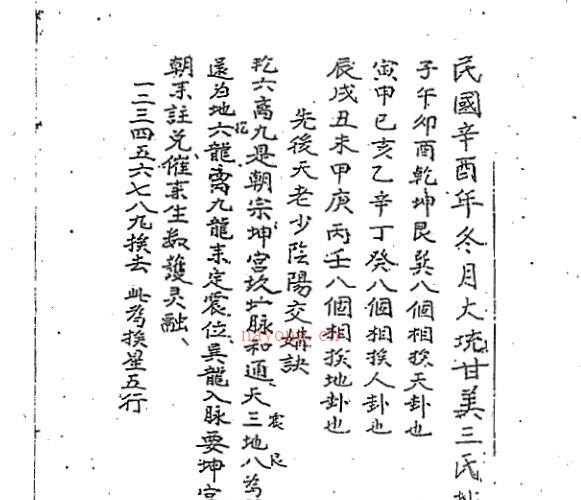 民國辛酉年冬月大坑甘美三氏抄
子午卯酉乾坤艮巽八個相挨天卦也
寅申巳亥乙辛丁癸八個相挨人卦也
辰戌丑未甲庚丙壬八個相挨地卦也
先後天老少陰陽交媾訣
乾六离九是朝宗坤宮坎一脉和通天三地八為
震艮
還為地六龍离九龍来定震位巽龍入脉要坤宮
乾
朝来註兑催来生毓護灵融、
一二三四五六七八九挨去 此為挨星五行
nayong.cn